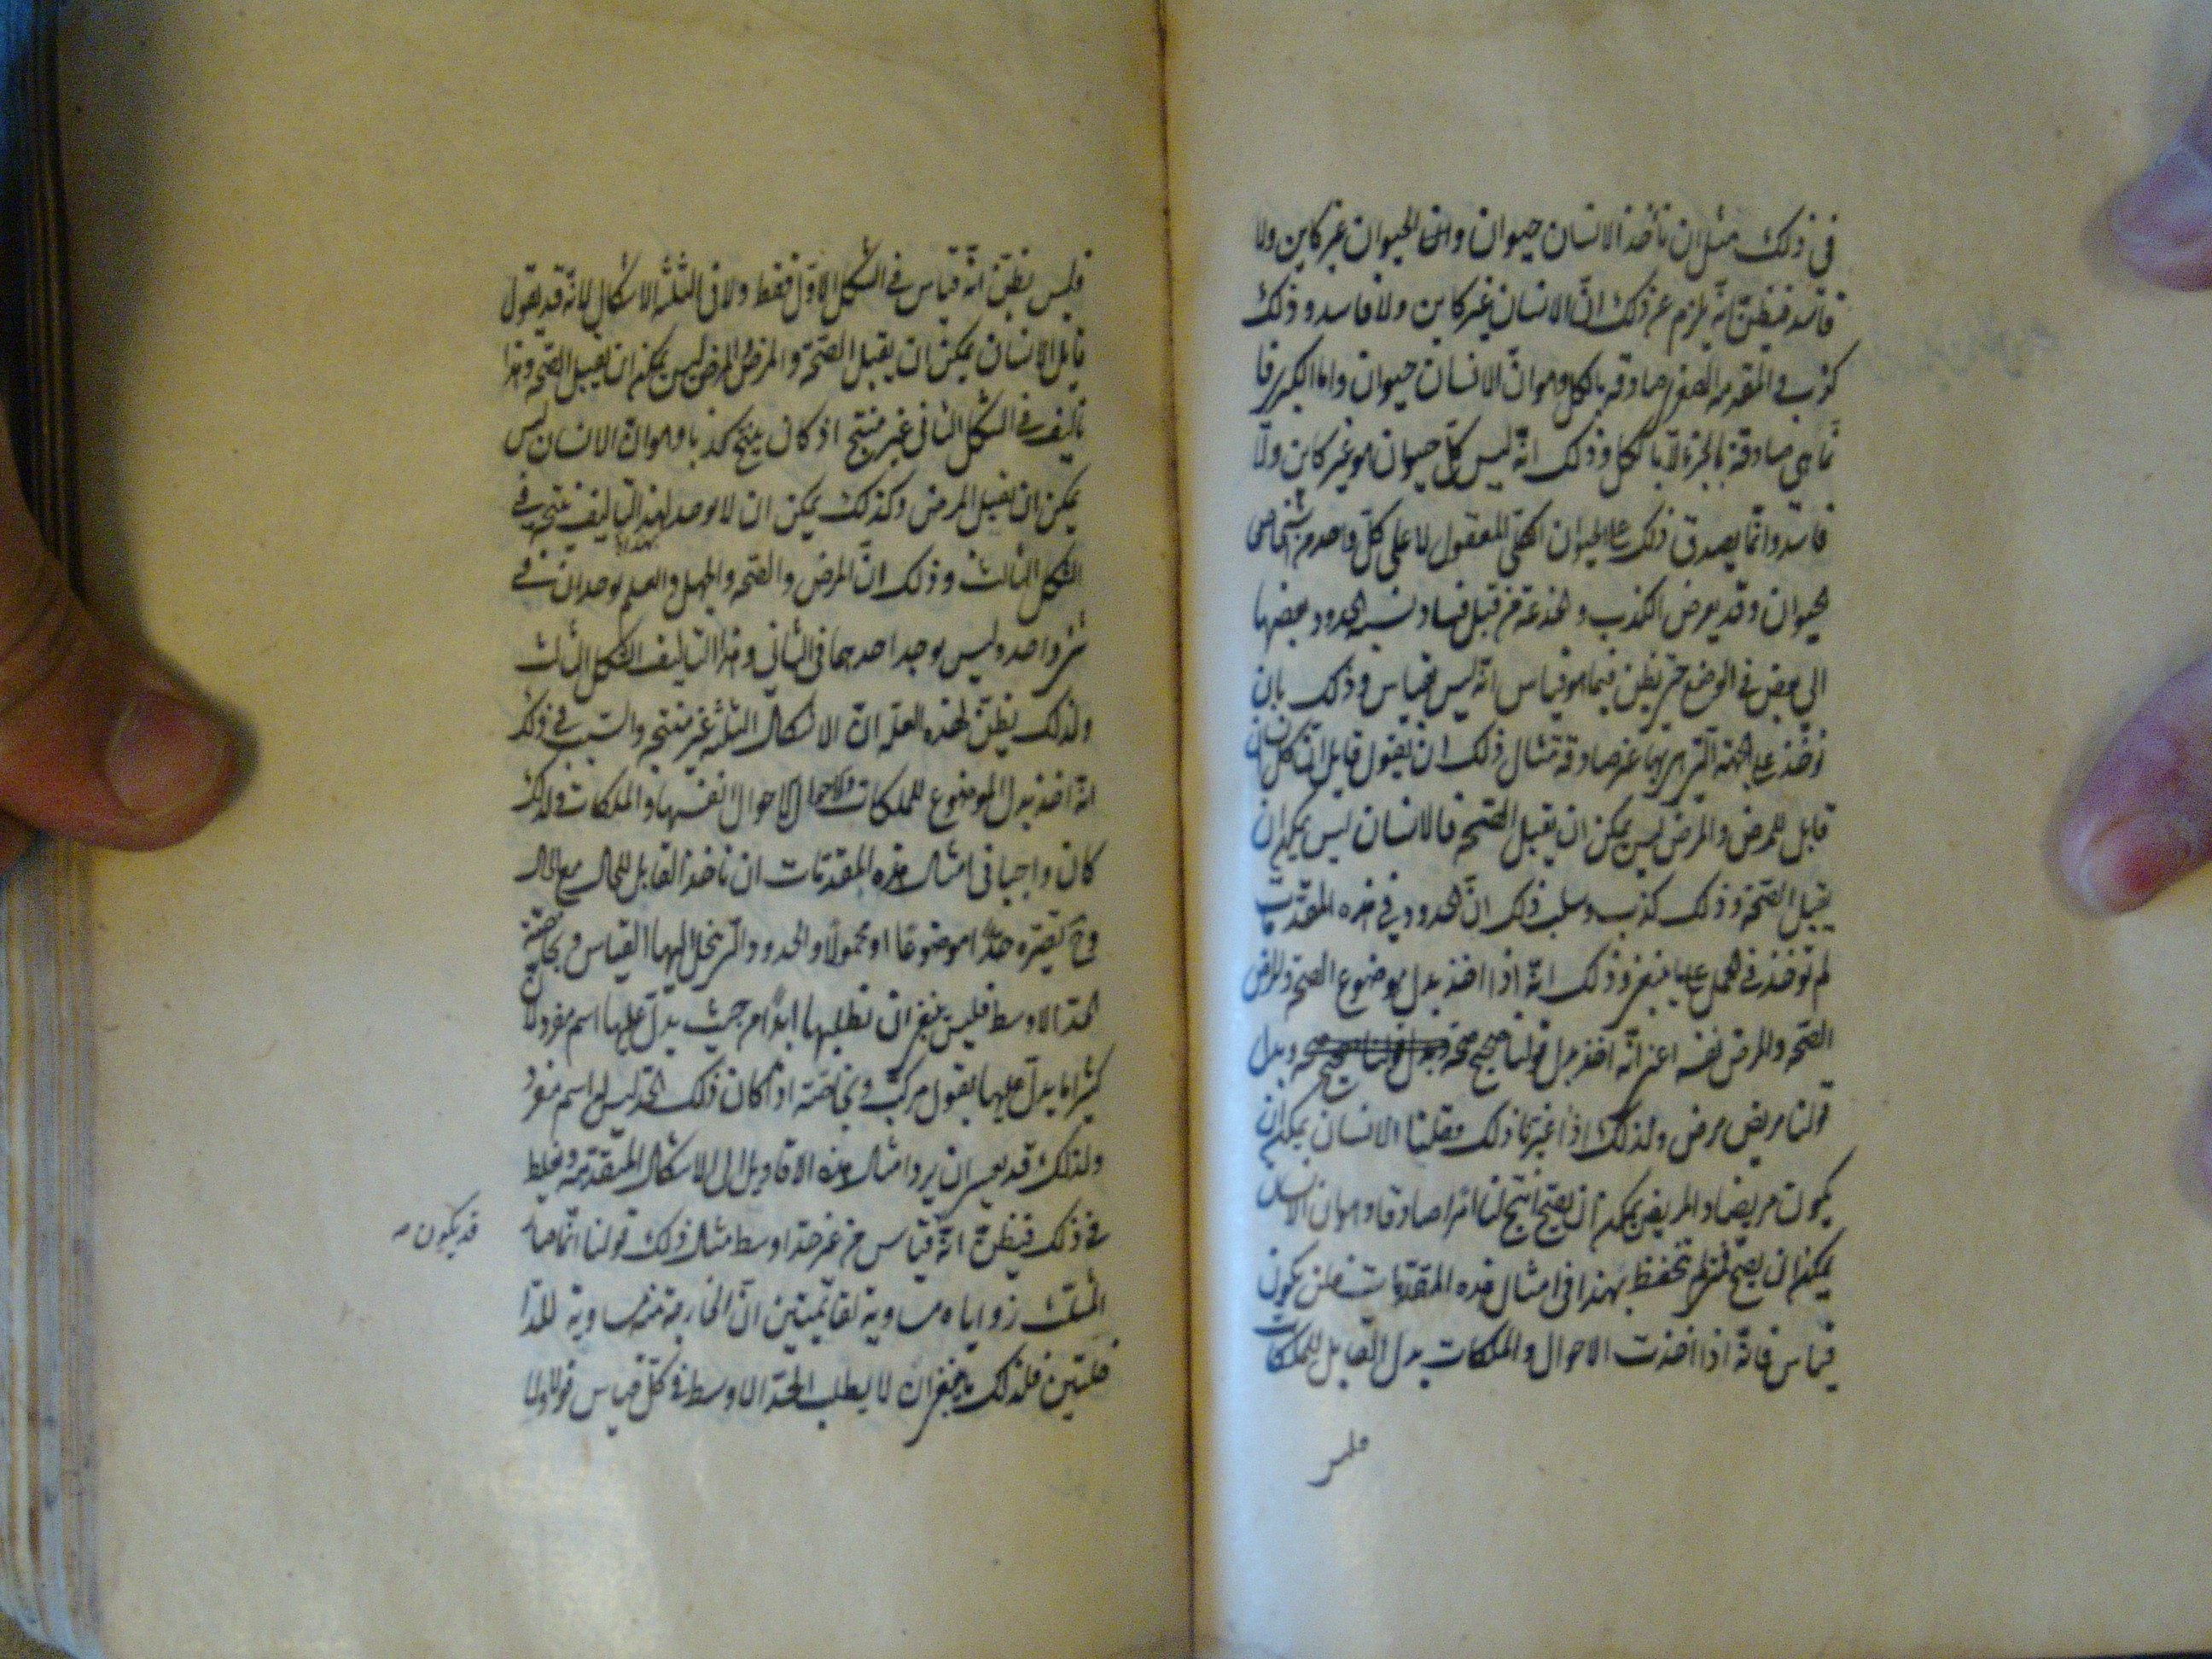 في ذلك مثل ان نأخذ الانسان حيوان وان الحيوان غير كاين ولا
فاسد فيظن انه يلزم عن ذلك ان الانسان غير كاين ولا فاسد وذلك
كذب والمقدمة الصغرى صادقة بالكل وهو ان الانسان حيوان واما الكبرى فا
نما هي صادقة بالجزء لا بالكل وذلك انه ليس كل حيوان هو غير كاين ولا
فاسد وانما يصدق ذلك على الحيوان الكلي المعقول لا على كل واحد من اشخاص
الحيوان وقد يعرض الكذب والخدعة من قبل فساد نسبة الحدود بعضها
الى بعض في الوضع حتى يظن فيما هو قياس انه ليس بقياس وذلك بان
تؤخذ على الجهة التي هي بها غير صادقة مثال ذلك ان يقول قايل ان كل انسان
قابل للمرض والمرض ليس يمكن ان يقبل الصحة فالانسان ليس يمكن ان
يقبل الصحة وذلك كذب وسبب ذلك ان الحدود في هذه المقدمات
لم تؤخذ في الحمل على ما ينبغي وذلك انه اذا اخذ بدل موضوع الصحة والمرض
الصحة والمرض نفسه اعني انه اخذ بدل قولنا صحيح صحة وبدل
قولنا مريض مرض ولذلك اذا غيرنا ذلك وقلنا الانسان يمكن ان
يكون مريضا والمريض يمكن ان يصح انتج لنا امرا صادقا وهو ان الانسان
يمكن ان يصح فمتى لم تحفظ بهذا في امثال هذه المقدمات فلن يكون
قياس فانه اذا اخذت الاحوال والملكات بدل القابل للملكات
فليس
فليس يظن انه قياس في الشكل الاول فقط ولا في الثلثة الاشكال لانه قد يقول
قايل الانسان يمكن ان يقبل الصحة والمرض المرض ليس يمكن ان يقبل الصحة وهذا
تاليف في الشكل الثاني غير منتج اذ كان ينتج كذبا وهو ان الانسان ليس
يمكن ان يقبل المرض وكذلك يمكن ان لا يوجد لهذا التاليف نتيجة في
الشكل الثالث وذلك ان المرض والصحة والجهل والعلم يوجدان في
شيء واحد وليس يوجد احدهما في الثاني وهذا التاليف الشكل الثالث
ولذلك يظن لهذه العلة ان الاشكال الثلثة غير منتجة والسبب في ذلك
انه اخذ بدل الموضوع للملكات والاحوال الاحوال انفسها والملكات ولذلك
كان واجبا في امثال هذه المقدمات ان ناخذ القابل للحال مع الحال
وح نصيره حدا موضوعا او محمولا والحدود التي ينحل اليها القياس وبخاصة
الحد الاوسط فليس ينبغي ان نطلبها ابدا من حيث يدل عليها اسم مفرد لان
كثيرا ما يدل عليها بقول مركب وبخاصة اذا كان ذلك الحد ليس له اسم مفرد
ولذلك قد يعسر ان يرد امثال هذه الاقاويل الى الاشكال المتقدمة ويغلط
في ذلك فيظن انه قياس من غير حد اوسط مثال ذلك قولنا انما صار
قد يكون
المثلث زواياه مساوية لقائمتين ان الخارجة منه مساوية للدا
خلتين فلذلك ينبغي ان لا يطلب الحد الاوسط في كل قياس قولا ولا